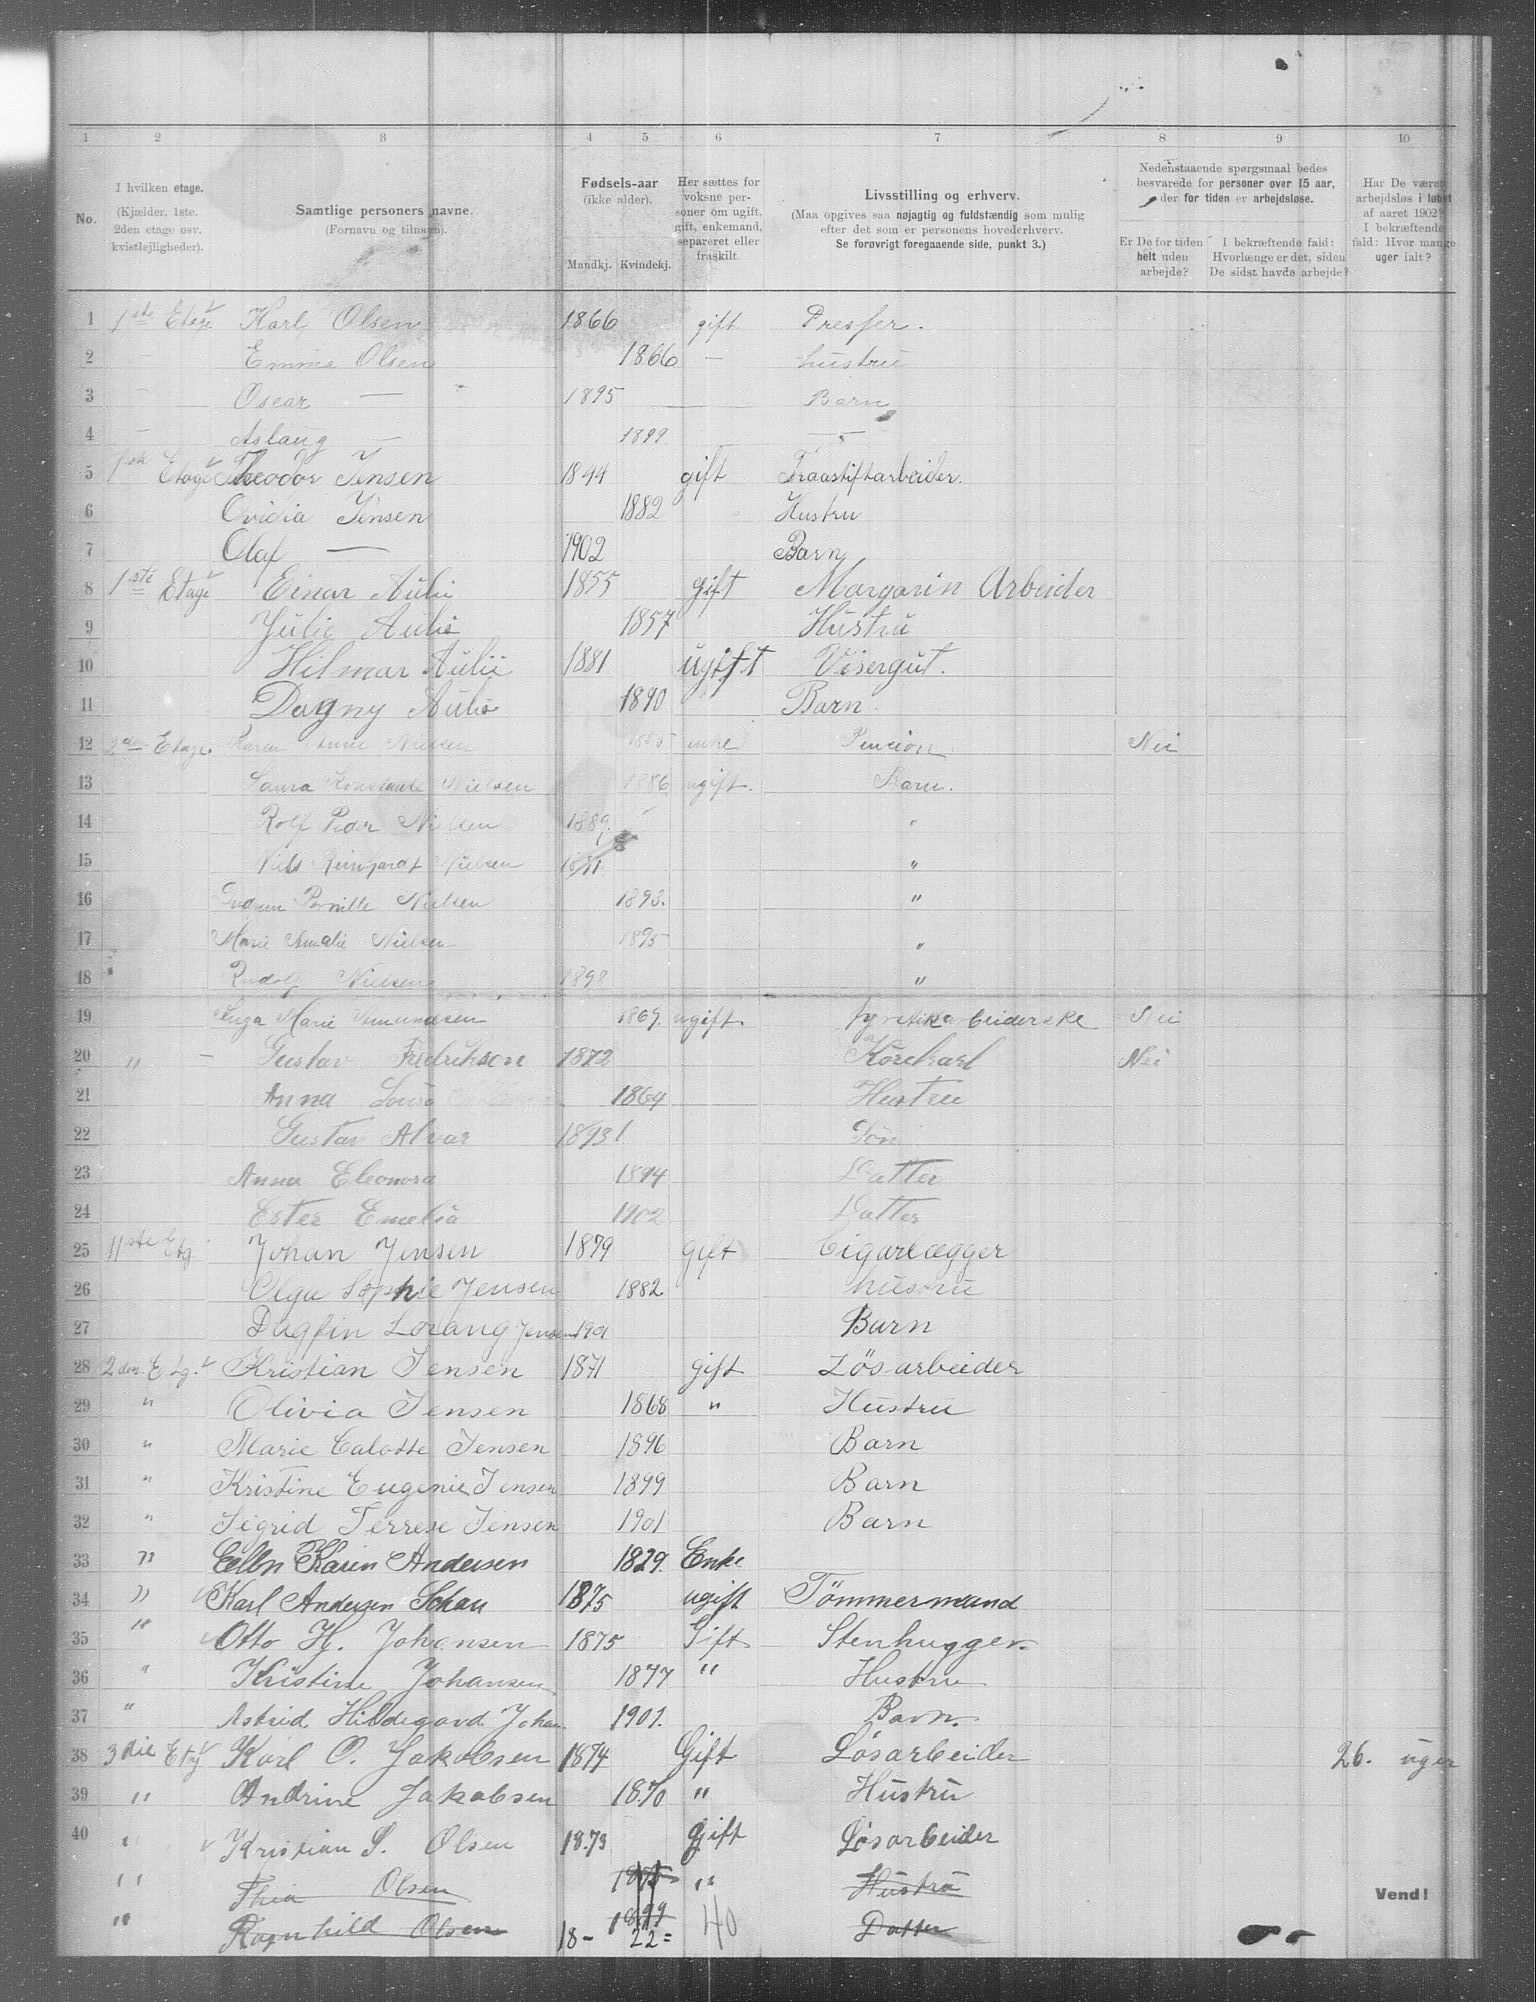 1 2 3 4 5 6 7 8 9 10
No.
I hvilken etage.
(Kjælder, 1ste.
2den etage osv.
kvistlejligheder).
Samtlige personers navne.
(Fornavn og tilnavn).
Fødsels-aar
(ikke alder).
Mandkj. Kvindekj.
Her sættes for
voksne per-
soner om ugift,
gift, enkemand,
separeret eller
fraskilt.
Livsstilling og erhverv.
(Maa opgives saa nøjagtig og fuldstændig som mulig
efter det som er personens hovederhverv.
Se forøvrigt foregaaende side, punkt 3.)
Nedenstaaende spørgsmaal bedes
besvarede for personer over 15 aar,
der for tiden er arbejdsløse.
Er De for tiden
helt uden
arbejde?
I bekræftende fald:
Hvorlænge er det, siden
De sidst havde arbejde?
Har De været
arbejdsløs i løbet
af aaret 1902?
I bekræftende
fald: Hvor mange
uger ialt?
1 1ste Etage Karl Olsen 1866 gift Presser.
2 – Emma Olsen 1866 – hustru
3 – Oscar — 1895 Barn
4 – Aslaug — 1899 —
5 1ste Etage Theodor Jensen 1844 gift Traastiftarbeider.
6 Ovidia Jensen 1882 Hustru
7 Olaf — 1902 Barn
8 1ste Etage Einar Aulie 1855 gift Margarin Arbeider
9 Julie Aulie 1857 Hustru
10 Hilmar Aulie 1881 ugift Visergut.
11 Dagny Aulie 1890 Barn.
12 2den Etage. Karen Nielsen enke Pension Nei
13 Laura Konstanse Nielsen 1886 ugift. Barn.
14 Rolf Peder Nielsen 1889. "
15 Niels Nielsen 1891. "
16 Gudrun Pernille Nielsen 1893. "
17 Marie Amalie Nielsen 1895 "
18 Rudolf Nielsen 1898 "
19 Inga Marie Amundsen 1869. ugift. Nei
20 " – Gustav Fredriksen 1872 Kørekarl Nei
21 Anna 1864 Hustru
22 Gustav Alvar 1893 Søn
23 Anna Eleonora 1894 Datter
24 Ester Emelia 1902 Datter
25 11ste Etg. Johan Jensen 1879 gift Cigarlægger
26 Olga Sophie Jensen 1882 husoru
27 Dagfin Lorang Jensen 1901 Barn
28 2den. Etg. Kristian Jensen 1871 gift Lösarbeider
29 " Olivia Jensen 1868 " Hustru
30 " Marie Calotte Jensen 1896 Barn
31 " Kristine Eugenie Jensen 1899 Barn
32 " Sigrid Terrese Jensen 1901 Barn
33 " Karin Andersen 1829. Enke
34 " Karl Andersen Schau 1875 ugift Tömmermand
35 " Otto H. Johansen 1875 Gift Stenhugger
36 " Kristine Johansen 1877 " Hustru
37 " Astrid Hildegard Johan. 1901. Barn.
38 3die Etg Karl O. Jakobsen 1874 Gift Løsarbeider 26. uger
39 " Andrine Jakobsen 1870 " Hustru
40 " Kristian S. Olsen 1873 Gift Løsarbeider
" Thea Olsen 1875 " Hustru
" Ragnhild Olsen 1899 Datter
18– 22= 40
Vend!